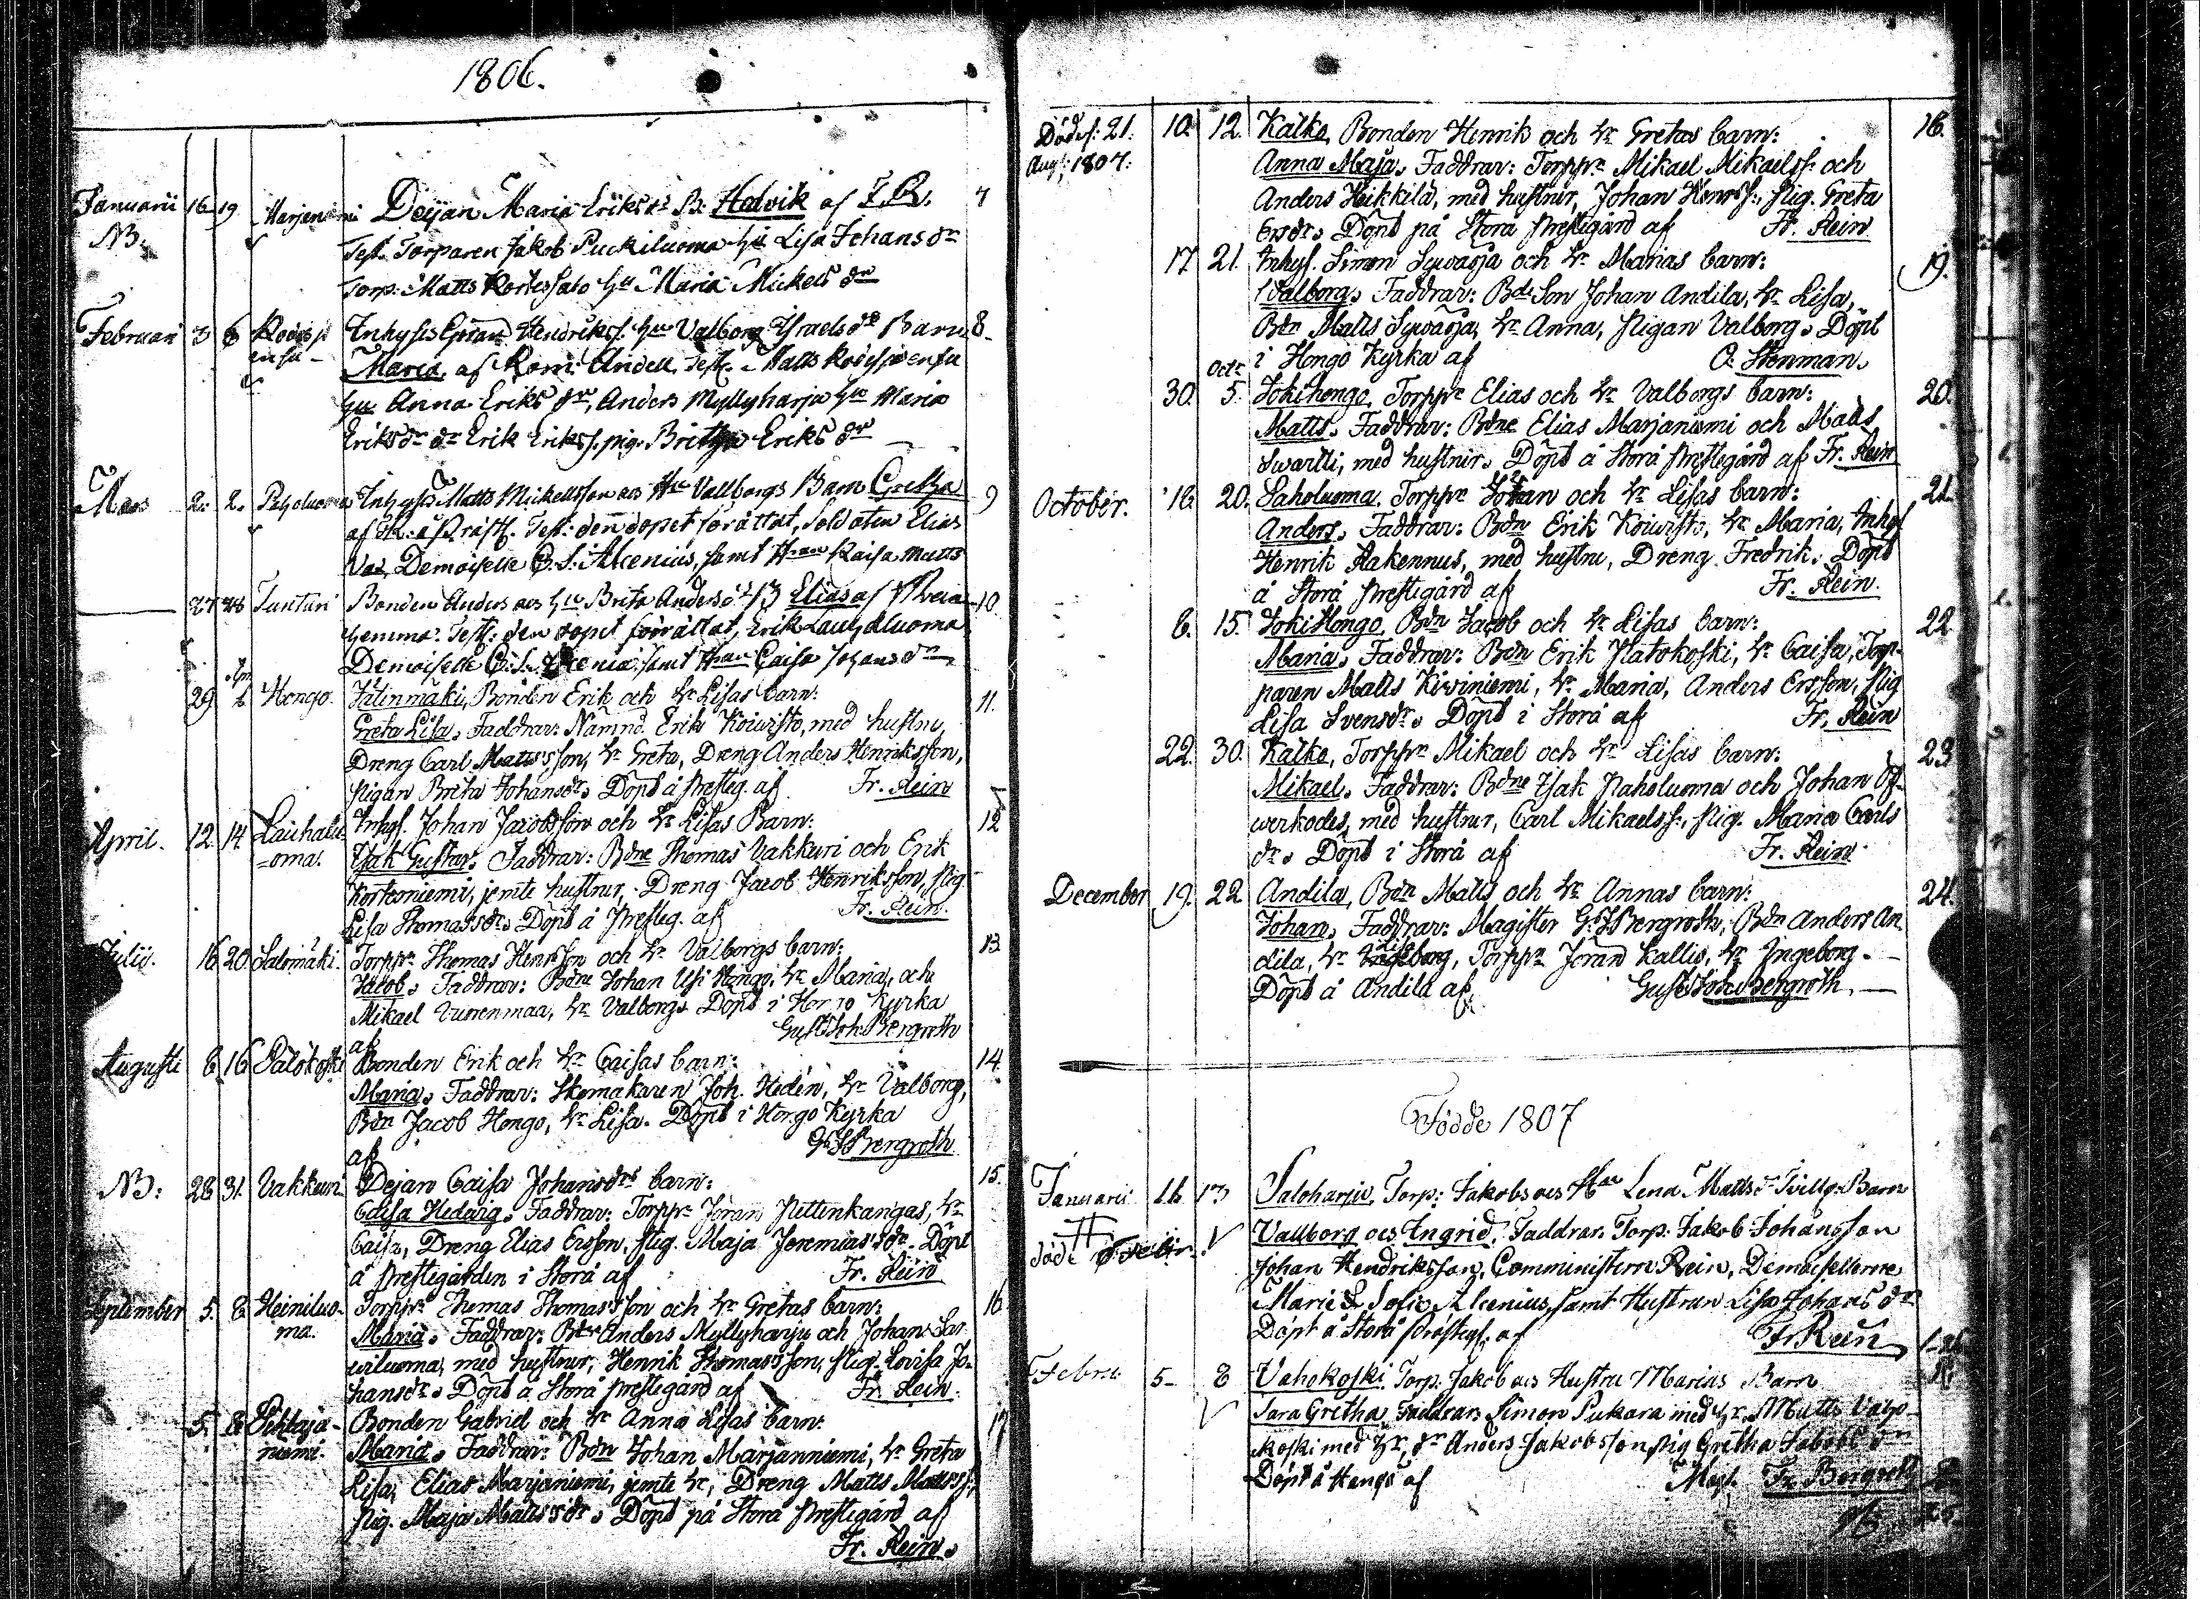 1806.
Januarii 16 19 Marjeniemi Deijan Maria Eriks dr B. Hedvik af F. R. 7
NB. Test. Torparen Jakob Puckiluoma hu Lisa Johans dr
Torp. Matts Kortessalo hu Maria Mickels dr
Februari 3 6 Inhyses Hendrikss. hu Valborg Israels dr Barn 8
Maria af Test. Matts
hu Anna Eriks dr, Anders Myllyharju hu Maria
Eriks dr Erik Erikss. pig. Britha Eriks dr
Mars 2. 2. Inhyses Matts Mickellsson ocs Hu Vallborgs Barn Gretha 9
af Test: den dopet förrättat, Soldaten Elias
Demoiselle C. S. Alcenius, samt Kaisa Matts
27 28 Tuuturi Bonden Anders ocs hu Brita Anders dr B Elias af 10.
hemma. Test: den dopet förrättat, Erik Lauhaluoma
Demoiselle samt Caisa Johans dr
29 Hongo. Jätinmäki, Bonden Erik och hr Lisas barn: 11.
Greta Lisa. Faddrar: Nämnd. Erik Koivisto, med hustru,
Dreng Carl Mattsson, hr Greta, Dreng Anders Henriksson,
Pigan Brita Johansdr. Döpt å Presteg. af Fr. Rein
April. 12. 14 Lauhalu- Inhys. Johan Jacobsson och hr Lisas Barn: 12
=oma. Isak Gustav. Faddrar: Bdne Thomas Vakkuri och Erik
Korteniemi, jemte hustrur, Dreng Jacob Henriksson, Pig.
Lisa Thomasdr. Döpt å Presteg. af Fr. Rein.
Julii. 16 20 Salomäki. Torppr Thomas Henrsson och hr Valborgs barn: 13
Jacob. Faddrar: Bdne Johan Usi Hongo, hr Maria, och
Mikael Vuorenmaa, hr Valborg. Döpt i Hongo Kyrka
af Gust Joh Bergroth
Augusti 8 16 Palokoski Bonden Erik och hr Caisas barn: 14
Maria. Faddrar: Skomakaren Joh. Hedén, hr Valborg,
Bdn Jacob Hongo, hr Lisa. Döpt i Hongo Kyrka
af G J Bergroth
NB: 28 31. Vakkuri. Dejan Caisa Johansdrs barn: 15.
Caisa Hedvig. Faddrar: Torppr Jöran Pettenkangas, hr
Caisa, Dreng Elias Ersson, Pig. Maja Jeremiasdr. Döpt
å Prestegården i Storå af Fr. Rein
September 5. 8 Heiniluo- Torppr Thomas Thomasson och hr Gretas barn: 16
ma. Maria. Faddrar: Bdn Anders Myllyharju och Johan Sar-
wiluoma, med hustrur, Henrik Thomasson, Pig. Lovisa Jo-
hansdr. Döpt å Storå Prestegård af Fr. Rein.
5. 8 Pehkaja- Bonden Gabriel och hr Anna Lisas barn: 17
niemi. Maria. Faddrar: Bdn Johan Marjanniemi, hr Greta
Lisa, Elias Marjaniemi, jemte hr, Dreng Matts Mattss.,
Pig. Maja Mattsdr. Döpt på Storå Prestegård af
Fr. Rein.
Död d: 21. 10. 12. Kalko, Bonden Henrik och hr Gretas barn: 18.
Aug; 1807. Anna Maja. Faddrar: Torppr Mikael Mikaelss. och
Anders Heikkilä, med hustrur, Johan Henrss., Pig. Greta
Ersdr. Döpt på Storå Prestegård af Fr. Rein
17 21. Inhys. Simon Sywärja och hr Marias barn: 19.
Valborg. Faddrar: Bde Son Johan Andila, hr Lisa,
Bdn Matts Sywärja, hr Anna, Pigan Valborg. Döpt
i Hongo Kyrka af O. Stenman.
Octr
30. 5. Jokihongo, Torppr Elias och hr Valborgs barn: 20.
Matts. Faddrar: Bdne Elias Marjaniemi och Matts
Swartti, med hustrur. Döpt å Storå Prestegård af Fr. Rein
October. 16 20. Laholuoma, Torppr Johan och hr Lisas barn: 21.
Anders. Faddrar: Bdn Erik Koivisto, hr Maria, Inhys
Henrik Rakennus, med hustru, Dreng Fredrik. Döpt
å Storå Prestegård af Fr. Rein.
6. 15. Joki Hongo, Bdn Jacob och hr Lisas barn: 22
Maria. Faddrar: Bdn Erik Palokoski, hr Caisa, Torp-
paren Matts Kiviniemi, hr Maria, Anders Ersson, Pig
Lisa Svensdr. Döpt i Storå af Fr. Rein
22. 30. Kalko, Torppr Mikael och hr Lisas barn: 23
Mikael. Faddrar: Bdne Isak Paholuoma och Johan Öf-
werkodes, med hustrur, Carl Mikaelss., Pig. Maria Carls
dr. Döpt i Storå af Fr. Rein.
December 19. 22 Andila, Bdn Matts och hr Annas barn: 24.
Johan. Faddrar: Magister G. J Bergroth, Bdn Anders An-
dila, hr Lisa, Torppr Jöran Kallio, hr Ingeborg.
Döpt å Andila af Gust Joh Bergroth.
Födde 1807
Januarii 11. 13 Saloharju, Torp: Jakobs ocs Hu Lena Matts dr Tvilling Barn
Vallborg ocs Ingrid, Faddrar. Torp. Jakob Johansson
Johan Hendriksson, Comministern Rein, Demoisellerne
Marie & Sofie Alcenius, samt Hustrun Lisa Johans dr
Döpt å Storå Prästeg. af Fr Rein
Febru 5 8 Vahokoski Torp. Jakob ocs Hustru Marias Barn
Sara Gretha, Faddrar Simon Pukara med hr, Matts Vaho-
koski med hr, dr Anders Jakobsson pig Gretha Jakobs dr
Döpt å Hongo af Mag. Fr Bergroth